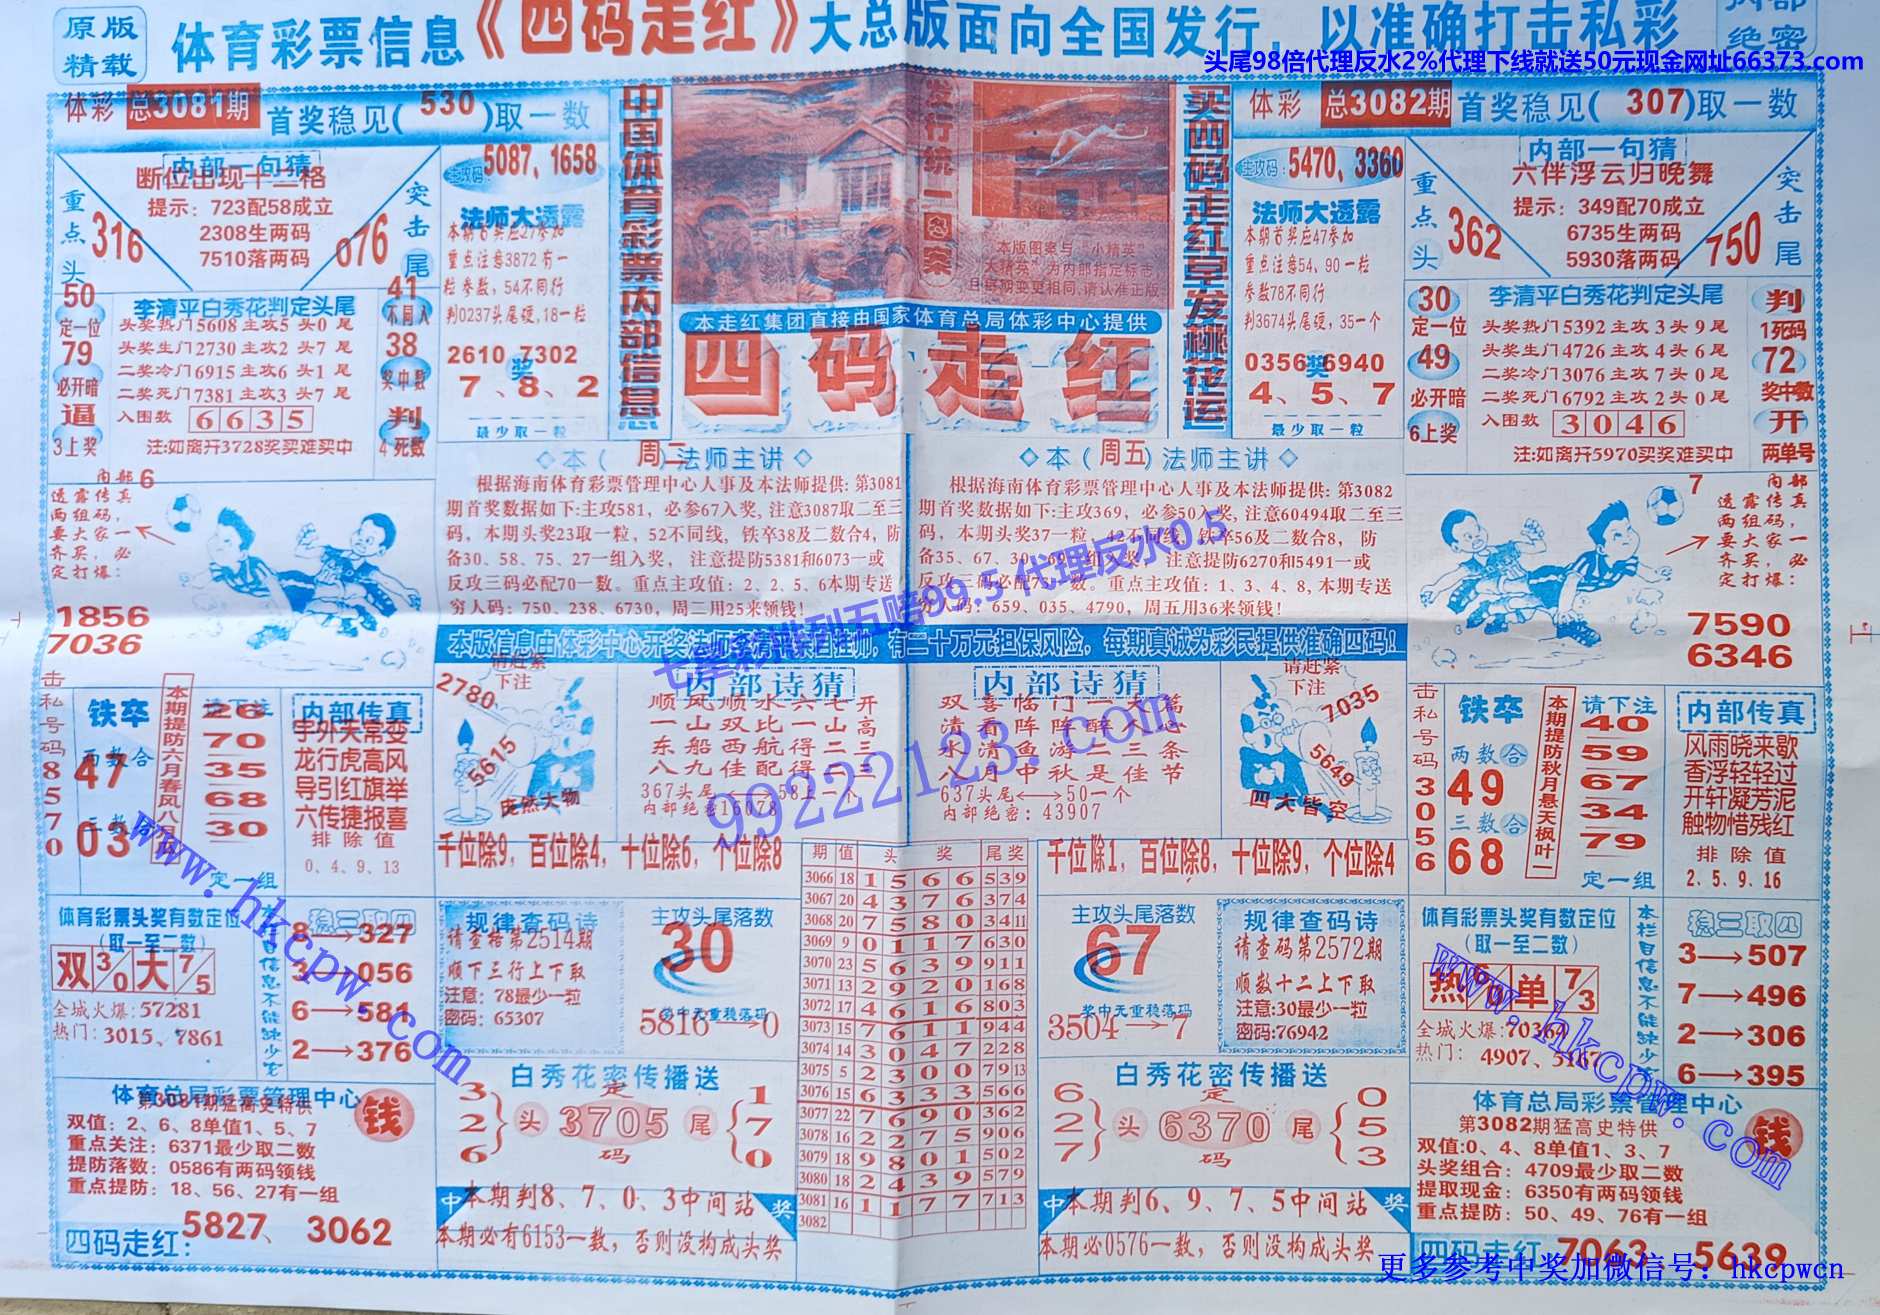 原版
精载
体育彩票信息《四码走红》大总版面向全国发行，以准确打击私彩
绝密
头尾98倍代理反水2%代理下线就送50元现金网址66373.com
体彩 总3081期 首奖稳见( 530 )取一数
内部一句猜
断位出现十二格
提示：723配58成立
2308生两码
7510落两码
重点头
316
突击尾
076
主攻码:
5087、1658
法师大透露
本期首奖应27参加
重点注意3872有一
粒参数，54不同行
判0237头尾硬,18一粒
2610 奖 7302
7、8、2
最少取一粒
50
定一位
79
必开暗
逼
3上奖
李清平白秀花判定头尾
头奖热门5608主攻5 头0 尾
头奖生门2730主攻2 头7 尾
二奖冷门6915主攻6 头1 尾
二奖死门7381主攻3 头7 尾
入围数 6635
注:如离开3728奖买难买中
41
不同入
38
奖中数
判
4死数
中国体育彩票内部信息
发行统一图案
本版图案与“小精英”
大精英”为内部指定标志,
且每期变更相同,请认准正版
本走红集团直接由国家体育总局体彩中心提供
四码走红
买四码走红早发横花运
体彩 总3082期 首奖稳见( 307 )取一数
主攻码:
5470、3360
法师大透露
本期首奖应47参加
重点注意54、90一粒
参数78不同行
判3674头尾硬，35一个
0356 奖 6940
4、5、7
最少取一粒
内部一句猜
六伴浮云归晚舞
提示：349配70成立
6735生两码
5930落两码
重点头
362
突击尾
750
30
定一位
49
必开暗
6上奖
李清平白秀花判定头尾
头奖热门5392主攻3头9尾
头奖生门4726主攻4头6尾
二奖冷门3076主攻7头0尾
二奖死门6792主攻2头0尾
入围数 3046
注:如离开5970买奖难买中
判
1死码
72
奖中数
开
两单号
内部 6
透露传真
两组码，
要大家一
齐买，必
定打爆：
1856
7036
◇本（周二）法师主讲◇
根据海南体育彩票管理中心人事及本法师提供: 第3081
期首奖数据如下:主攻581，必参67入奖, 注意3087取二至三
码，本期头奖23取一粒，52不同线，铁卒38及二数合4，防
备30、58、75、27一组入奖， 注意提防5381和6073一或
反攻三码必配70一数。重点主攻值：2、2、5、6本期专送
穷人码：750、238、6730，周二用25来领钱!
◇本（周五）法师主讲◇
根据海南体育彩票管理中心人事及本法师提供: 第3082
期首奖数据如下:主攻369，必参50入奖, 注意60494取二至三
码，本期头奖37一粒，42不同线，铁卒56及二数合8， 防
备35、67、30、69一组入奖， 注意提防6270和5491一或
反攻三码必配73一数。重点主攻值：1、3、4、8, 本期专送
穷人码：659、035、4790，周五用36来领钱!
7 内部
透露传真
两组码，
要大家一
齐买，必
定打爆：
7590
6346
本版信息由体彩中心开奖法师李清平亲自挂帅，有二十万元担保风险，每期真诚为彩民提供准确四码！
七星彩排列五赔99.5 代理反水0.5
99222123.com
击私号码 8 5 7 0
铁卒
两数合
47
三数合
03
本期提防六月春风八月瓜
请下注
26
70
35
68
30
定一组
内部传真
宇外天常变
龙行虎高风
导引红旗举
六传捷报喜
排除值
0、4、9、13
请赶紧
下注
2780
5615
庞然大物
内部诗猜
顺风顺水六七开
一山双比一山高
东船西航得二三
八九佳配得二三
367头尾⟷58上一个
内部绝密16078
内部诗猜
双喜临门一大篇
清看阵阵醉人心
水清鱼游二三条
八月中秋是佳节
637头尾⟷50一个
内部绝密: 43907
请赶紧
下注
7035
5649
四大皆空
击私号码 3 0 5 6
铁卒
两数合
49
三数合
68
本期提防秋月悬天枫叶一
请下注
40
59
67
34
79
定一组
内部传真
风雨晓来歇
香浮轻轻过
开轩凝芳泥
触物惜残红
排除值
2、5、9、16
千位除9，百位除4，十位除6，个位除8
千位除1，百位除8，十位除9，个位除4
体育彩票头奖有数定位
(取一至二数)
双 3/0 大 7/5
全城火爆: 57281
热门: 3015、7861
本栏目信息不能缺少它
稳三取四
8→327
3→056
6→581
2→376
规律查码诗
请查码第2514期
顺下三行上下取
注意：78最少一粒
密码：65307
主攻头尾落数
30
奖中无重稳落码
5816→0
期 值 头 奖 尾 奖
3066 18 1 5 6 6 539
3067 20 4 3 7 6 374
3068 20 7 5 8 0 3411
3069 9 0 1 1 7 630
3070 23 5 6 3 9 911
3071 13 2 9 2 0 168
3072 17 4 6 1 6 803
3073 15 7 6 1 1 944
3074 14 3 0 4 7 228
3075 5 2 3 0 0 7913
3076 15 6 3 3 3 566
3077 22 7 6 9 0 362
3078 16 2 2 7 5 906
3079 18 9 8 0 1 502
3080 18 2 4 3 9 579
3081 16 1 1 7 7 713
3082
主攻头尾落数
67
奖中无重稳落码
3504→7
规律查码诗
请查码第2572期
顺数十二上下取
注意:30最少一粒
密码:76942
体育彩票头奖有数定位
(取一至二数)
热 6/0 单 7/3
全城火爆: 70364
热门: 4907、5167
本栏目信息不能缺少它
稳三取四
3→507
7→496
2→306
6→395
www.hkcpw.com
www.hkcpw.com
体育总局彩票管理中心
第3081期猛高史特供
钱
双值：2、6、8单值1、5、7
重点关注：6371最少取二数
提防落数：0586有两码领钱
重点提防：18、56、27有一组
四码走红: 5827、3062
白秀花密传播送
3 2 6
头 定 3705 码 尾
1 7 0
中 本期判8、7、0、3中间站 奖
本期必有6153一数，否则没构成头奖
白秀花密传播送
6 2 7
头 定 6370 码 尾
0 5 3
中 本期判6、9、7、5中间站 奖
本期必0576一数，否则没构成头奖
体育总局彩票管理中心
第3082期猛高史特供
钱
双值:0、4、8单值1、3、7
头奖组合：4709最少取二数
提取现金：6350有两码领钱
重点提防：50、49、76有一组
四码走红 7063 5639
更多参考中奖加微信号：hkcpwcn